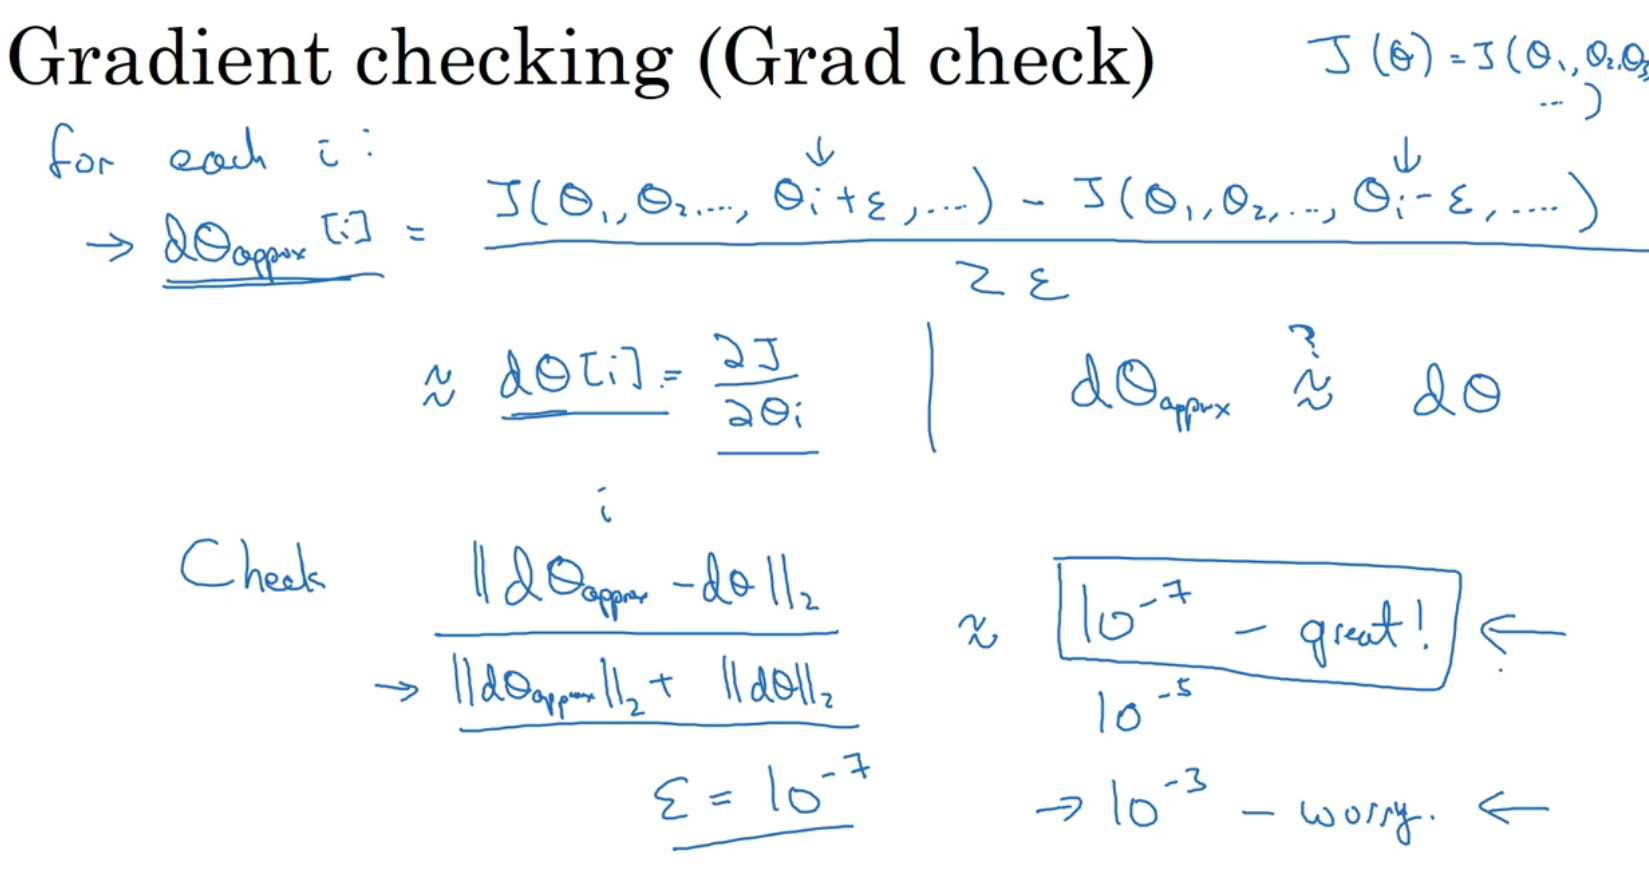 Gradient checking (Grad check)
J(θ) = J(θ₁, θ₂, θ₃
...)
for each i:
→ dθapprox[i] = J(θ₁, θ₂, ..., θᵢ+ε, ...) - J(θ₁, θ₂, ..., θᵢ-ε, ....)
2ε
≈ dθ[i] = ∂J/∂θᵢ | dθapprox ≈? dθ
i
Check ||dθapprox - dθ||₂ ≈ 10⁻⁷ - great! ←
→ ||dθapprox||₂ + ||dθ||₂
10⁻⁵
ε = 10⁻⁷
→ 10⁻³ - worry. ←